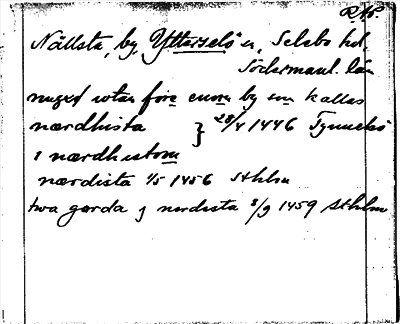 R.A.P.
Nällsta, by, Ytterselö sn, Selebo hd,
Södermanl. län
næræ utan fore enom by sm kallas
nærdhista } 28/4 1446 Tynnelsö
i nærdhistom
nærdista 1/5 1456 Sthlm
two garda j nærdista 8/9 1459 Sthlm